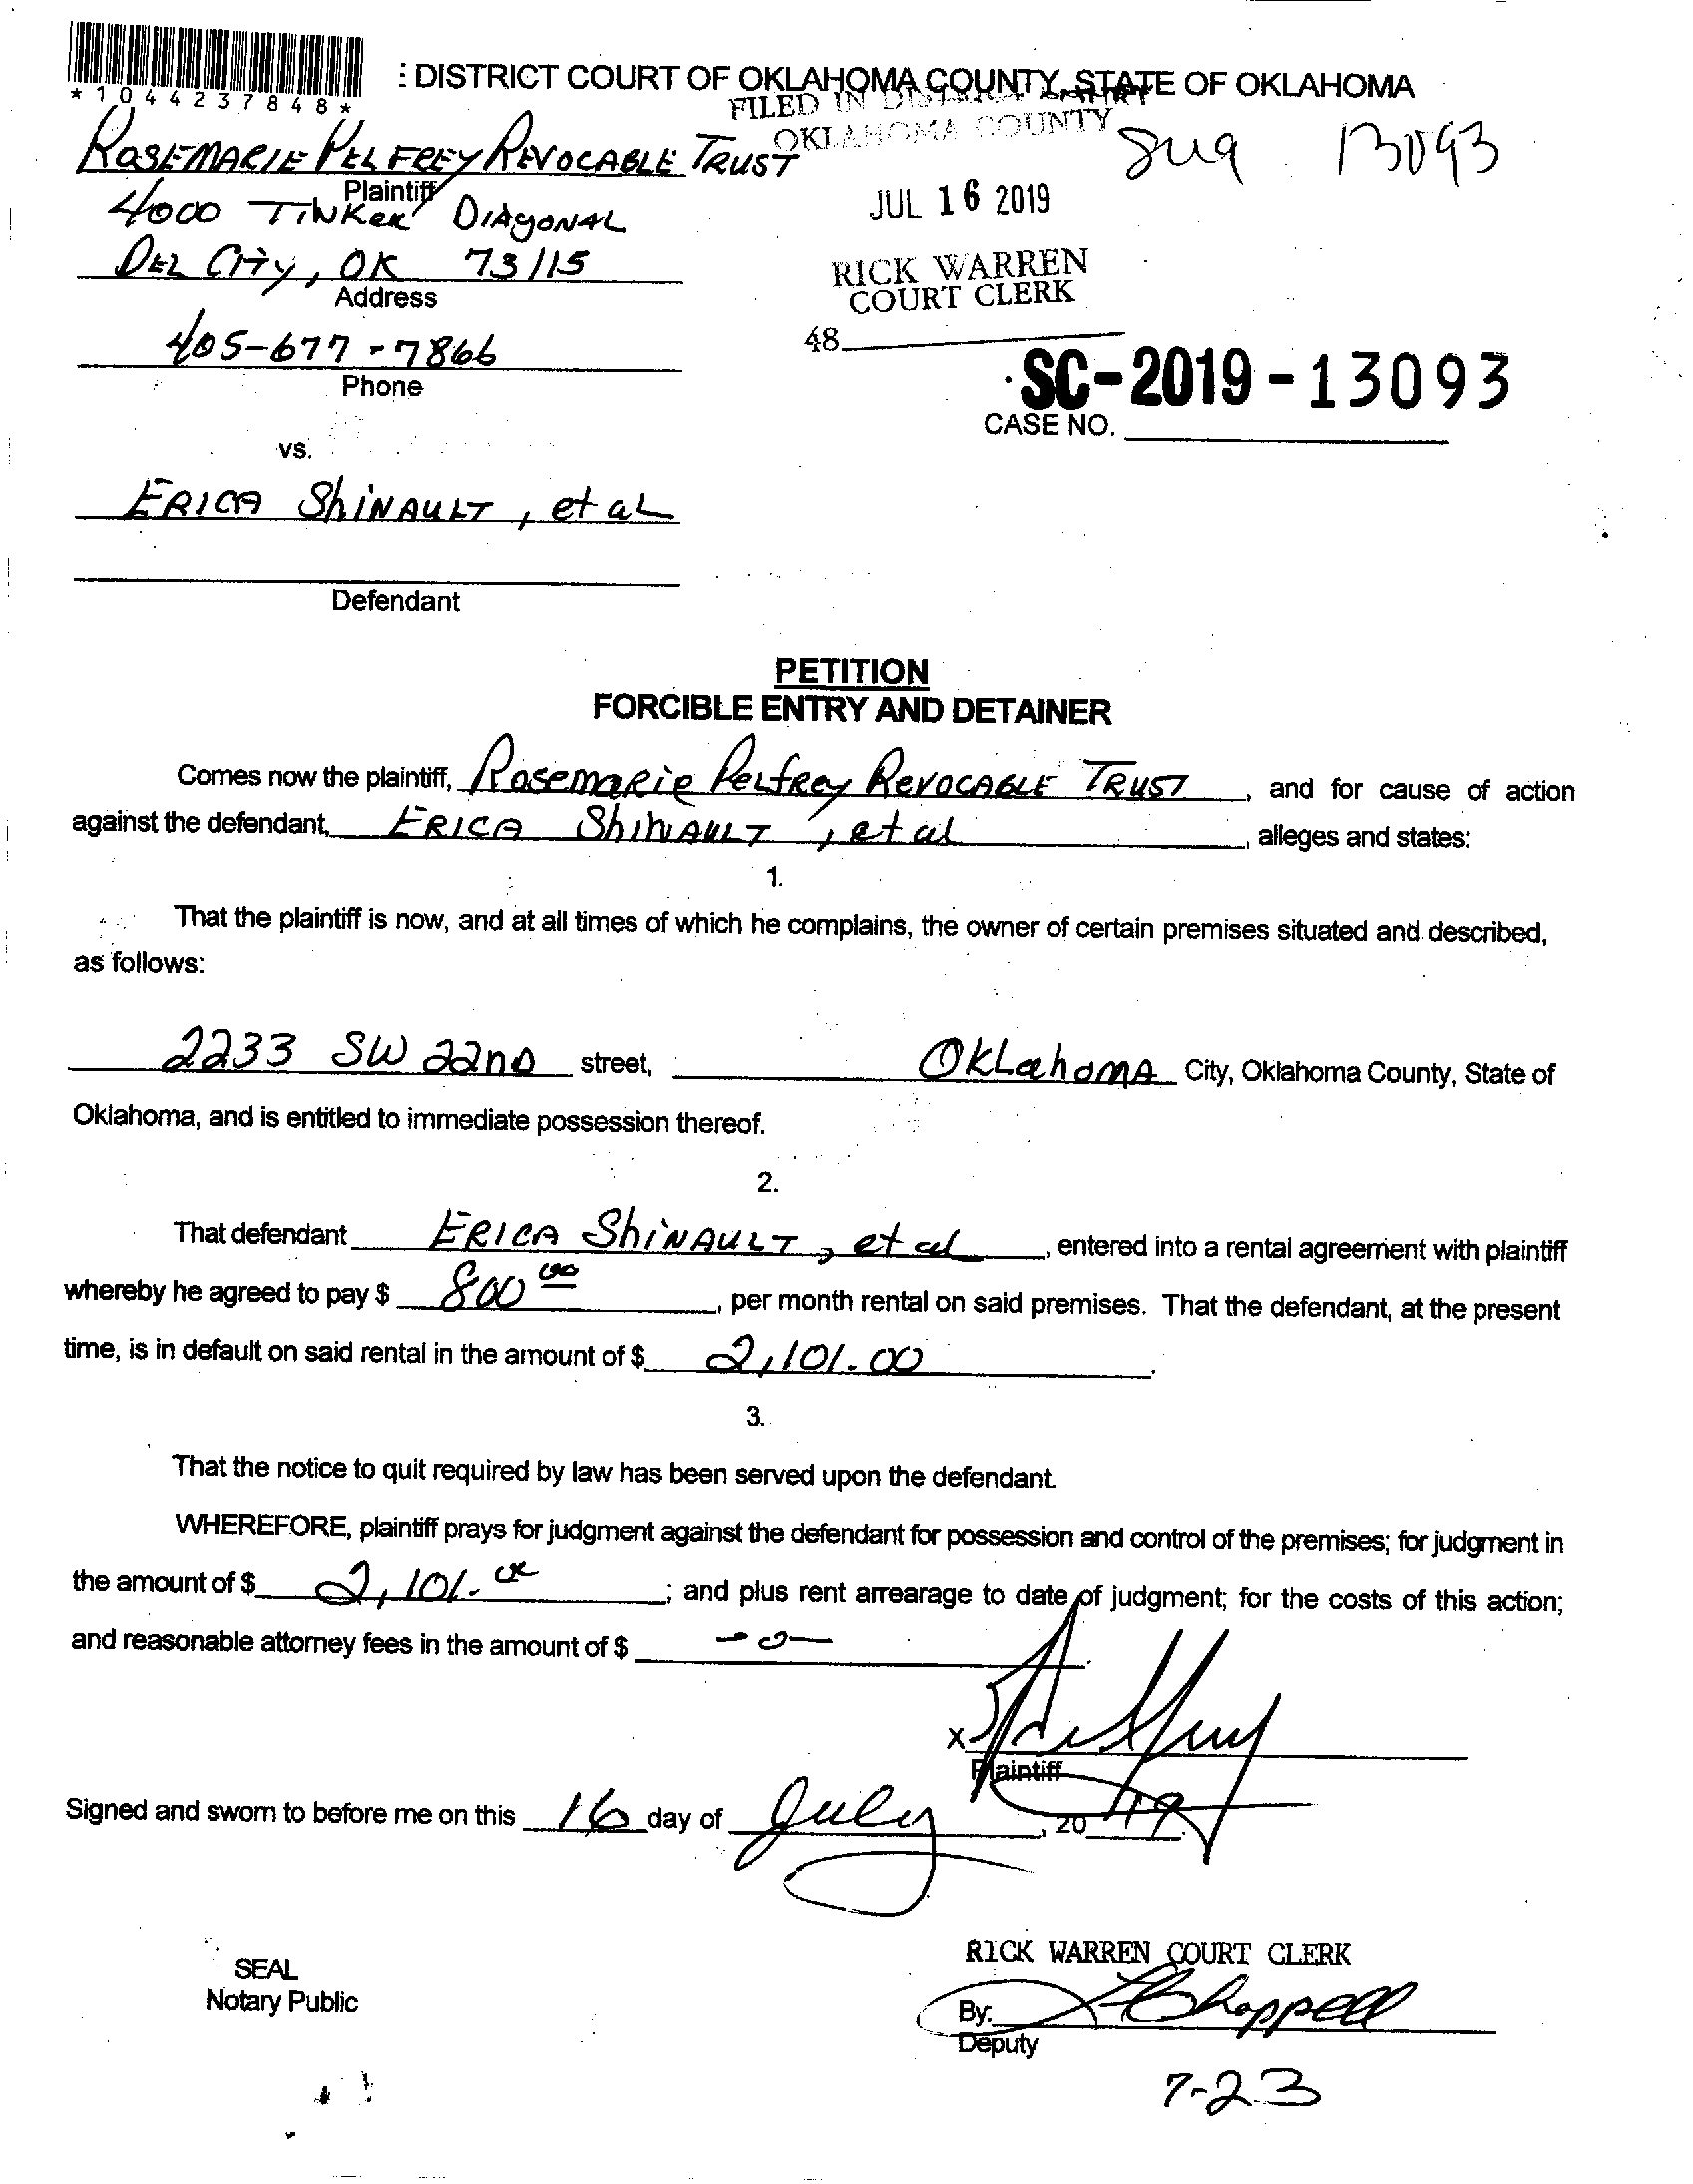 *1044237848*
: DISTRICT COURT OF OKLAHOMA COUNTY, STATE OF OKLAHOMA
FILED IN DISTRICT COURT
OKLAHOMA COUNTY
ROSEMARIE PELFREY REVOCABLE TRUST
13093
Plaintiff
4000 TINKER DIAGONAL
JUL 16 2019
DEL CITY, OK 73115
Address
RICK WARREN
COURT CLERK
405-677-7866
48
Phone
SC-2019-13093
CASE NO.
vs.
ERICA SHINAULT, et al
Defendant
PETITION
FORCIBLE ENTRY AND DETAINER
Comes now the plaintiff, Rosemarie Pelfrey Revocable Trust, and for cause of action
against the defendant, ERICA SHINAULT, et al, alleges and states:
1.
That the plaintiff is now, and at all times of which he complains, the owner of certain premises situated and described,
as follows:
2233 SW 22nd street, Oklahoma City, Oklahoma County, State of
Oklahoma, and is entitled to immediate possession thereof.
2.
That defendant ERICA SHINAULT, et al, entered into a rental agreement with plaintiff
whereby he agreed to pay $ 800 00, per month rental on said premises. That the defendant, at the present
time, is in default on said rental in the amount of $ 2,101.00.
3.
That the notice to quit required by law has been served upon the defendant.
WHEREFORE, plaintiff prays for judgment against the defendant for possession and control of the premises; for judgment in
the amount of $ 2,101.00; and plus rent arrearage to date of judgment; for the costs of this action;
and reasonable attorney fees in the amount of $ -0-.
X
Plaintiff
Signed and sworn to before me on this 16 day of July, 2019.
RICK WARREN COURT CLERK
SEAL
Notary Public
By: Chappell
Deputy
7-23